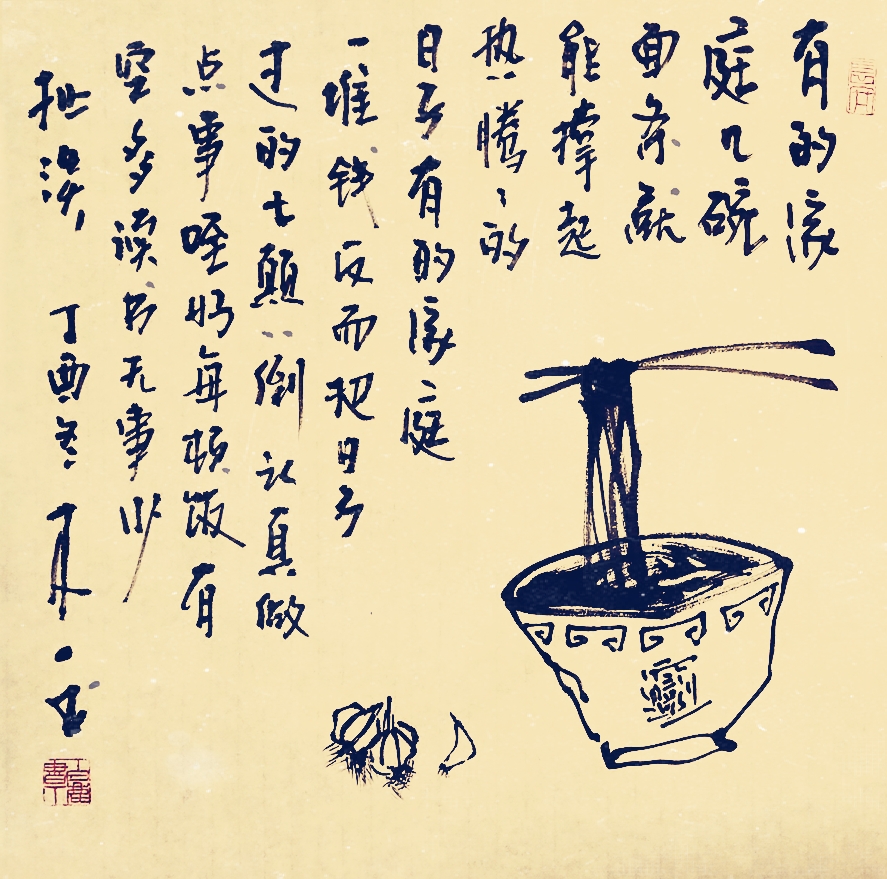 有的家
庭几碗
面条就
能撑起
热腾〻的
日子有的家庭
一堆钱反而把日子
过的七颠八倒认真做
点事咥好每顿饭有
空多读书无事少
扯淡 丁酉冬